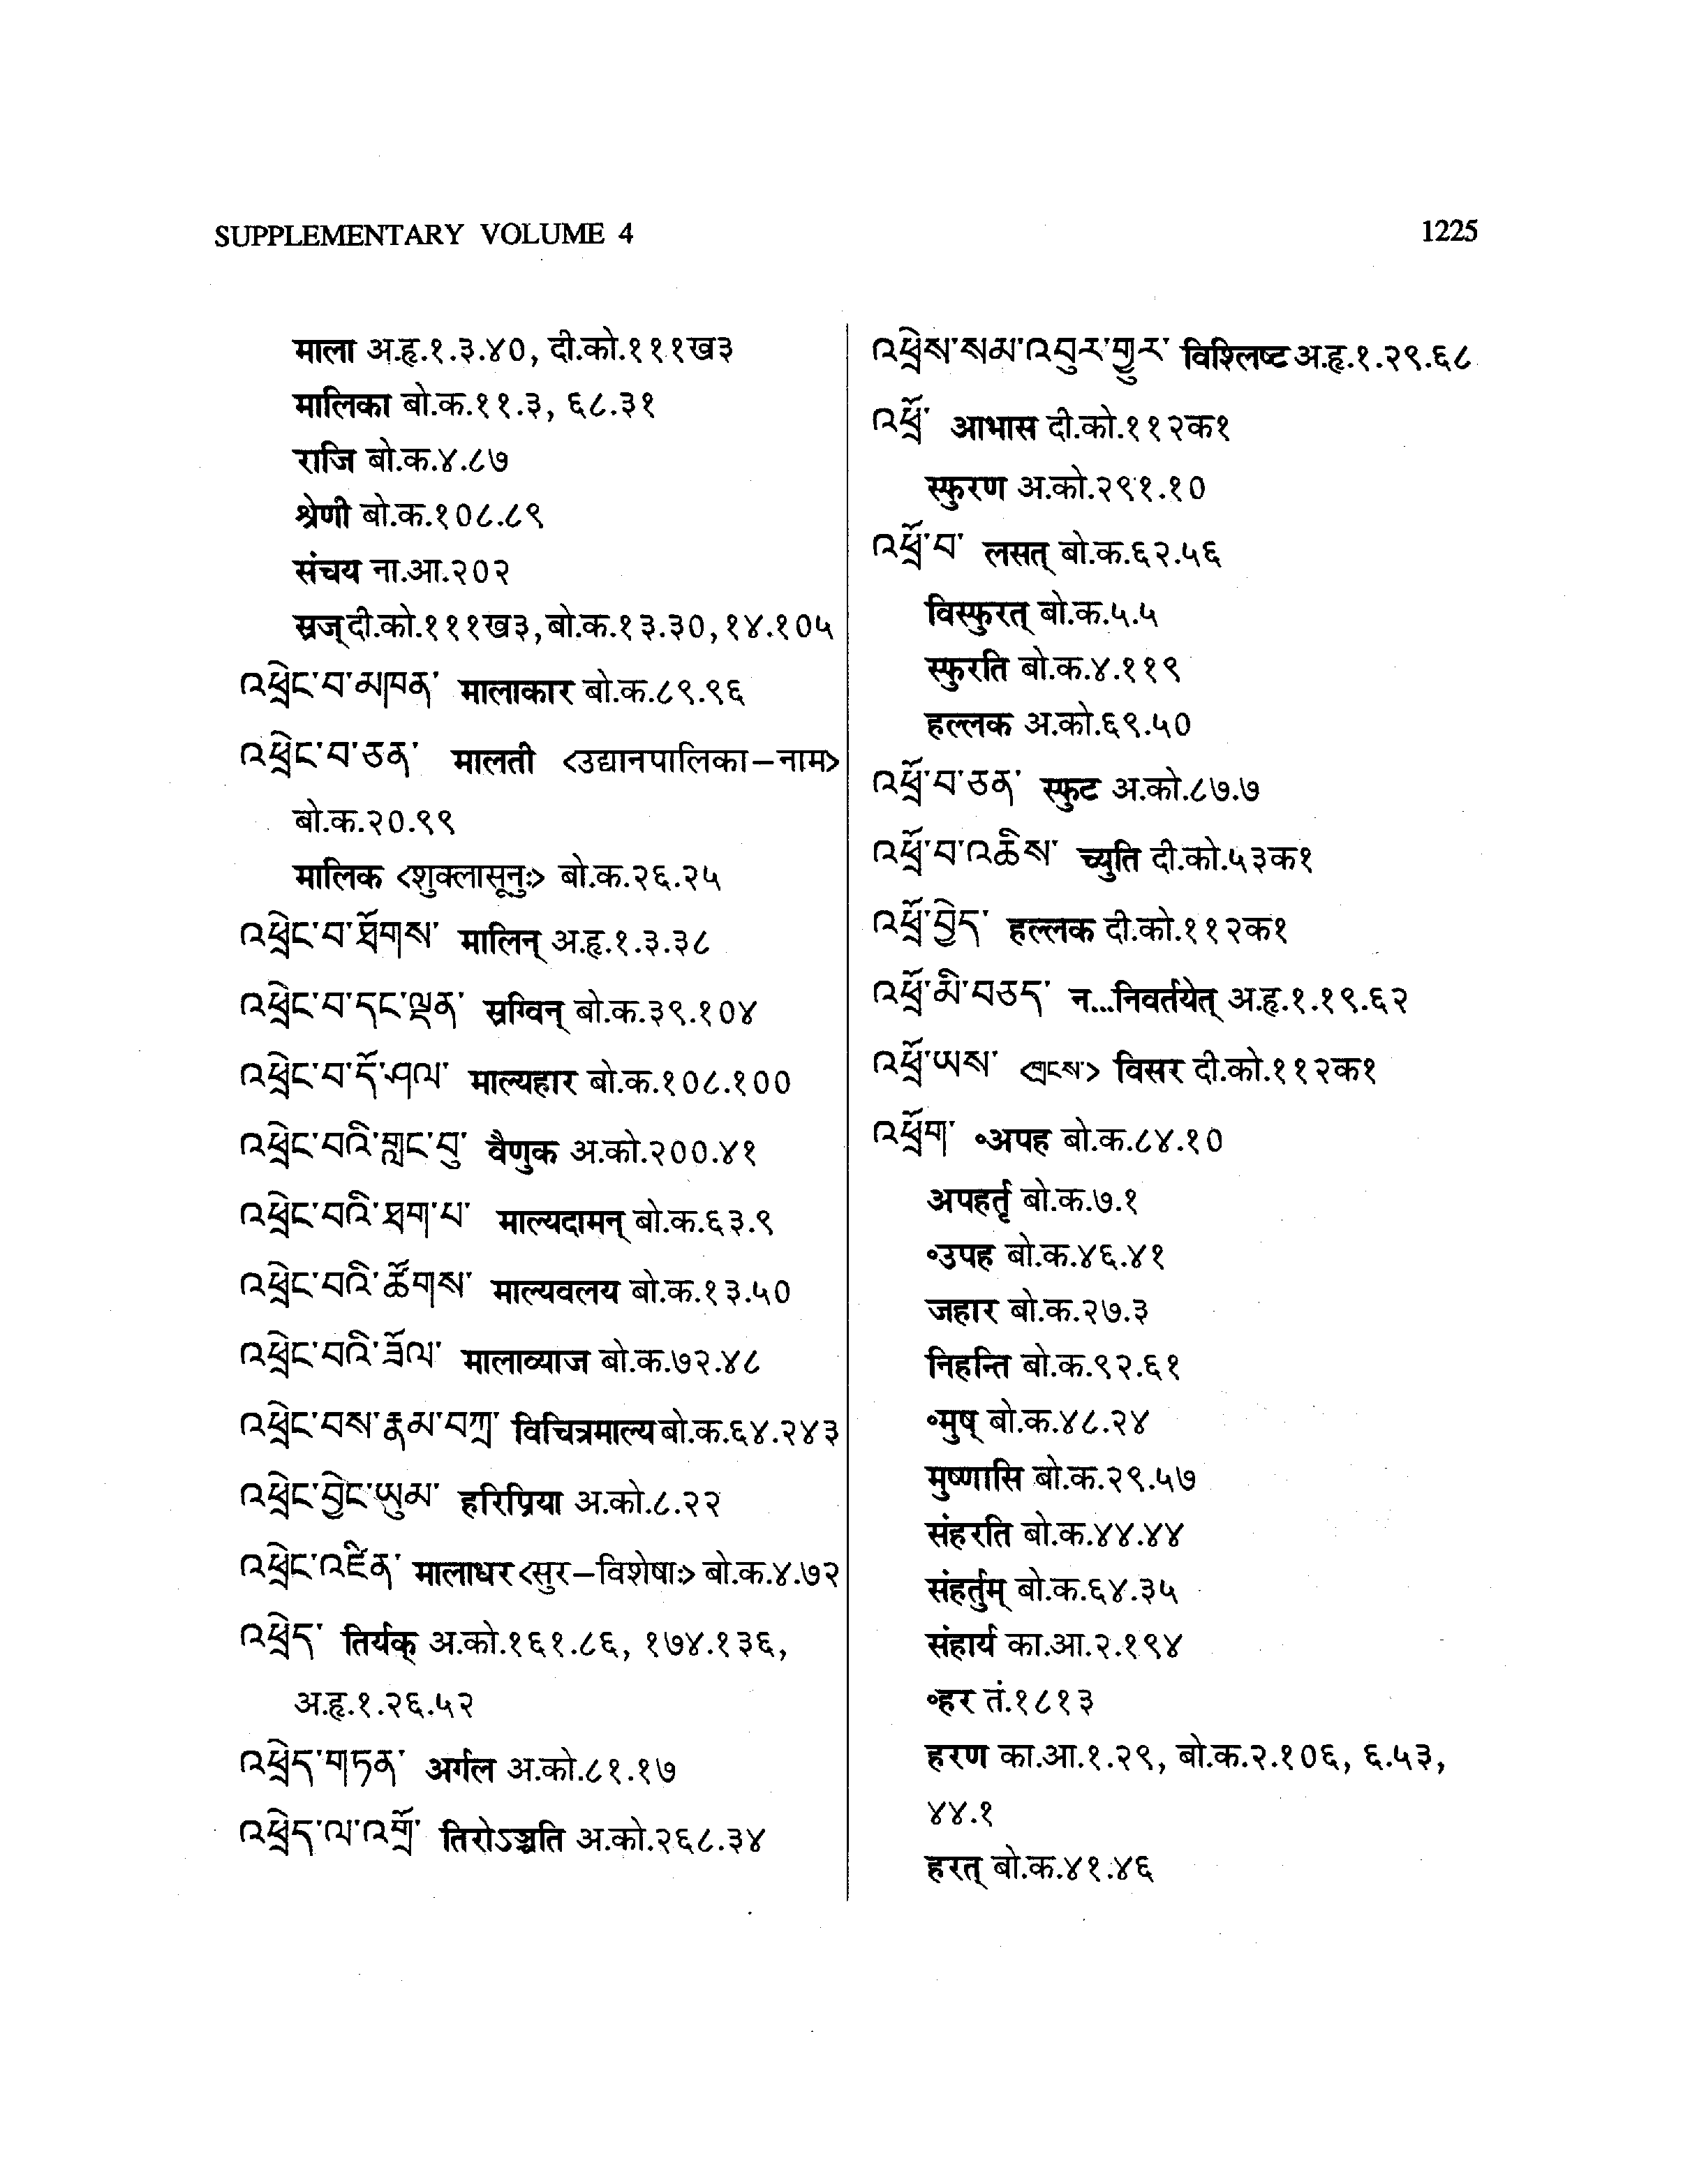 SUPPLEMENTARY VOLUME 4
1225
माला अ.हृ.१.३.४०, दी.को.१११ख३
मालिका बो.क.११.३, ६८.३१
राजि बो.क.४.८७
श्रेणी बो.क.१०८.८९
संचय ना.आ.२०२
स्रज् दी.को.१११ख३, बो.क.१३.३०, १४.१०५
འཕྲེང་བ་མཁན་ मालाकार बो.क.८९.९६
འཕྲེང་བ་ཅན་ मालती <उद्यानपालिका-नाम>
बो.क.२०.९९
मालिक <शुक्लासूनुः> बो.क.२६.२५
འཕྲེང་བ་ཐོགས་ मालिन् अ.हृ.१.३.३८
འཕྲེང་བ་དང་ལྡན་ स्रग्विन् बो.क.३९.१०४
འཕྲེང་བ་དོ་ཤལ་ माल्यहार बो.क.१०८.१००
འཕྲེང་བའི་གླང་བུ་ वैणुक अ.को.२००.४१
འཕྲེང་བའི་ཐག་པ་ माल्यदामन् बो.क.६३.९
འཕྲེང་བའི་ཚོགས་ माल्यवलय बो.क.१३.५०
འཕྲེང་བའི་ཟོལ་ मालाव्याज बो.क.७२.४८
འཕྲེང་བས་རྣམ་བཀྲ་ विचित्रमाल्य बो.क.६४.२४३
འཕྲེང་བྱེང་ཡུམ་ हरिप्रिया अ.को.८.२२
འཕྲེང་འཛིན་ मालाधर <सुर-विशेषाः> बो.क.४.७२
འཕྲེད་ तिर्यक् अ.को.१६१.८६, १७४.१३६,
अ.हृ.१.२६.५२
འཕྲེད་གཏན་ अर्गल अ.को.८१.१७
འཕྲེད་ལ་འགྲོ་ तिरोऽञ्चति अ.को.२६८.३४
འཕྲེས་སམ་འབུར་གྱུར་ विश्लिष्ट अ.हृ.१.२९.६८
འཕྲོ་ आभास दी.को.११२क१
स्फुरण अ.को.२९१.१०
འཕྲོ་བ་ लसत् बो.क.६२.५६
विस्फुरत् बो.क.५.५
स्फुरति बो.क.४.११९
हल्लक अ.को.६९.५०
འཕྲོ་བ་ཅན་ स्फुट अ.को.८७.७
འཕྲོ་བ་འཆིས་ च्युति दी.को.५३क१
འཕྲོ་བྱེད་ हल्लक दी.को.११२क१
འཕྲོ་མི་བཅད་ न...निवर्तयेत् अ.हृ.१.१९.६२
འཕྲོ་ཡས་ <གྲངས་> विसर दी.को.११२क१
འཕྲོག་ ॰अपह बो.क.८४.१०
अपहर्तृ बो.क.७.१
॰उपह बो.क.४६.४१
जहार बो.क.२७.३
निहन्ति बो.क.९२.६१
॰मुष् बो.क.४८.२४
मुष्णासि बो.क.२९.५७
संहरति बो.क.४४.४४
संहर्तुम् बो.क.६४.३५
संहार्य का.आ.२.१९४
॰हर तं.१८१३
हरण का.आ.१.२९, बो.क.२.१०६, ६.५३,
४४.१
हरत् बो.क.४१.४६